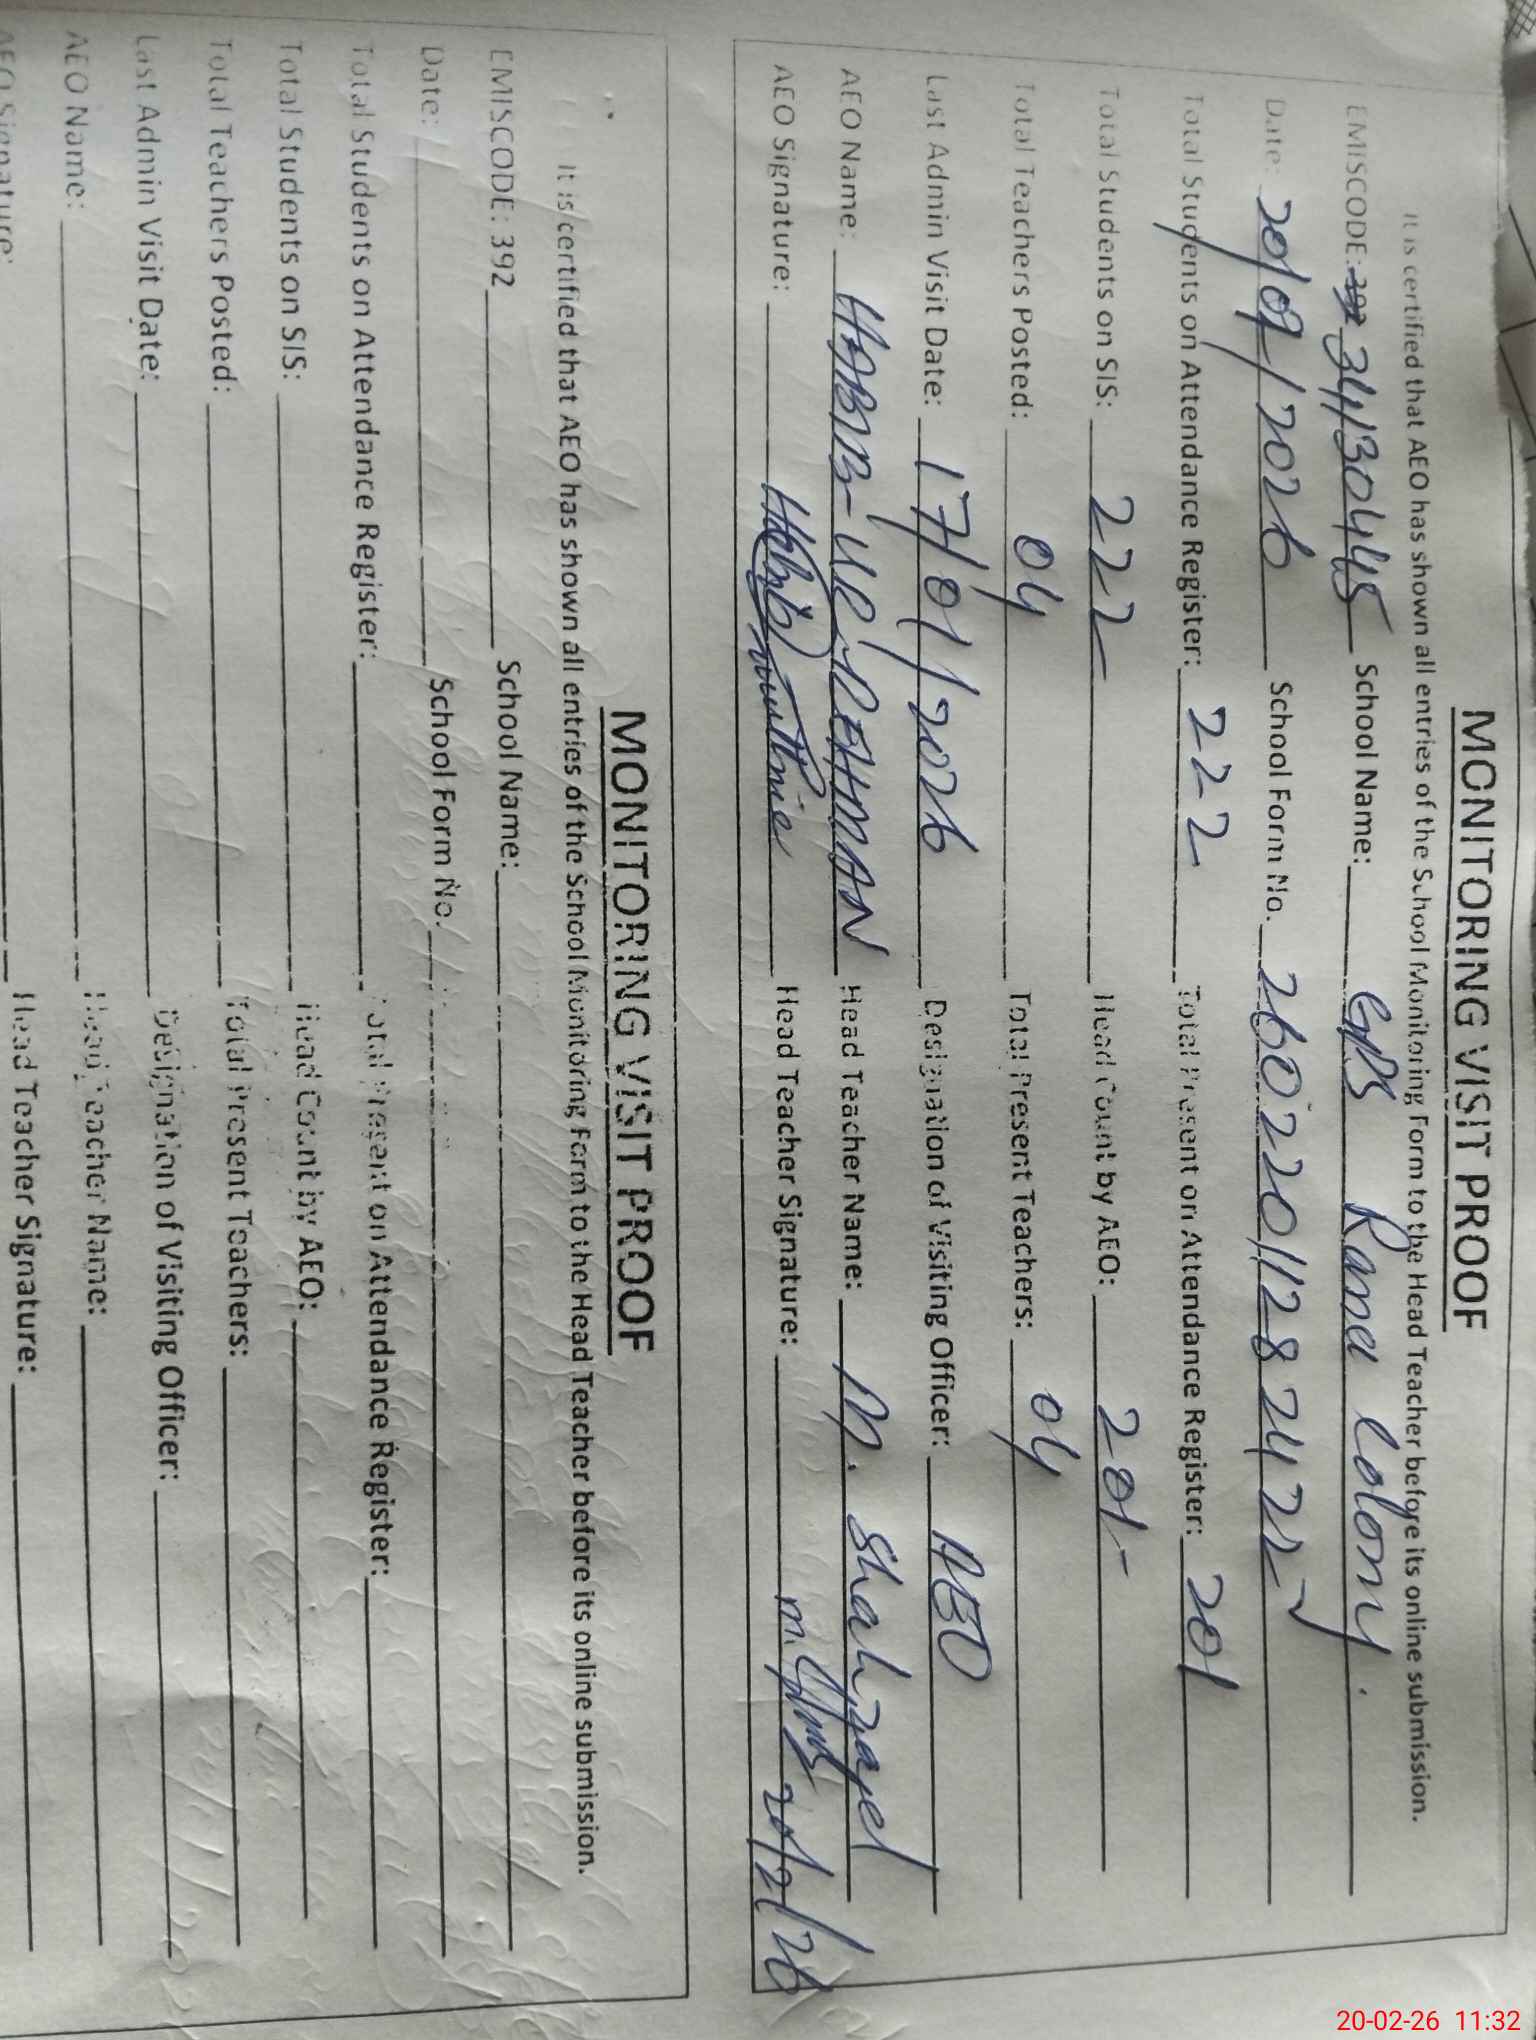 MONITORING VISIT PROOF
It is certified that AEO has shown all entries of the School Monitoring Form to the Head Teacher before its online submission.
EMISCODE: 392 34130445 School Name: GPS Rana Colony.
Date: 20/02/2026 School Form No. 26022011282422
Total Students on Attendance Register: 222 Total Present on Attendance Register: 201
Total Students on SIS: 222 Head Count by AEO: 201
Total Teachers Posted: 04 Total Present Teachers: 04
Last Admin Visit Date: 17/01/2026 Designation of Visiting Officer: AEO
AEO Name: HABIB-UR-REHMAN Head Teacher Name: M. Shahzad
AEO Signature: Head Teacher Signature: 20/2/26
MONITORING VISIT PROOF
It is certified that AEO has shown all entries of the School Monitoring Form to the Head Teacher before its online submission.
EMISCODE: 392 School Name:
Date: School Form No.
Total Students on Attendance Register: Total Present on Attendance Register:
Total Students on SIS: Head Count by AEO:
Total Teachers Posted: Total Present Teachers:
Last Admin Visit Date: Designation of Visiting Officer:
AEO Name: Head Teacher Name:
AEO Signature: Head Teacher Signature:
20-02-26 11:32